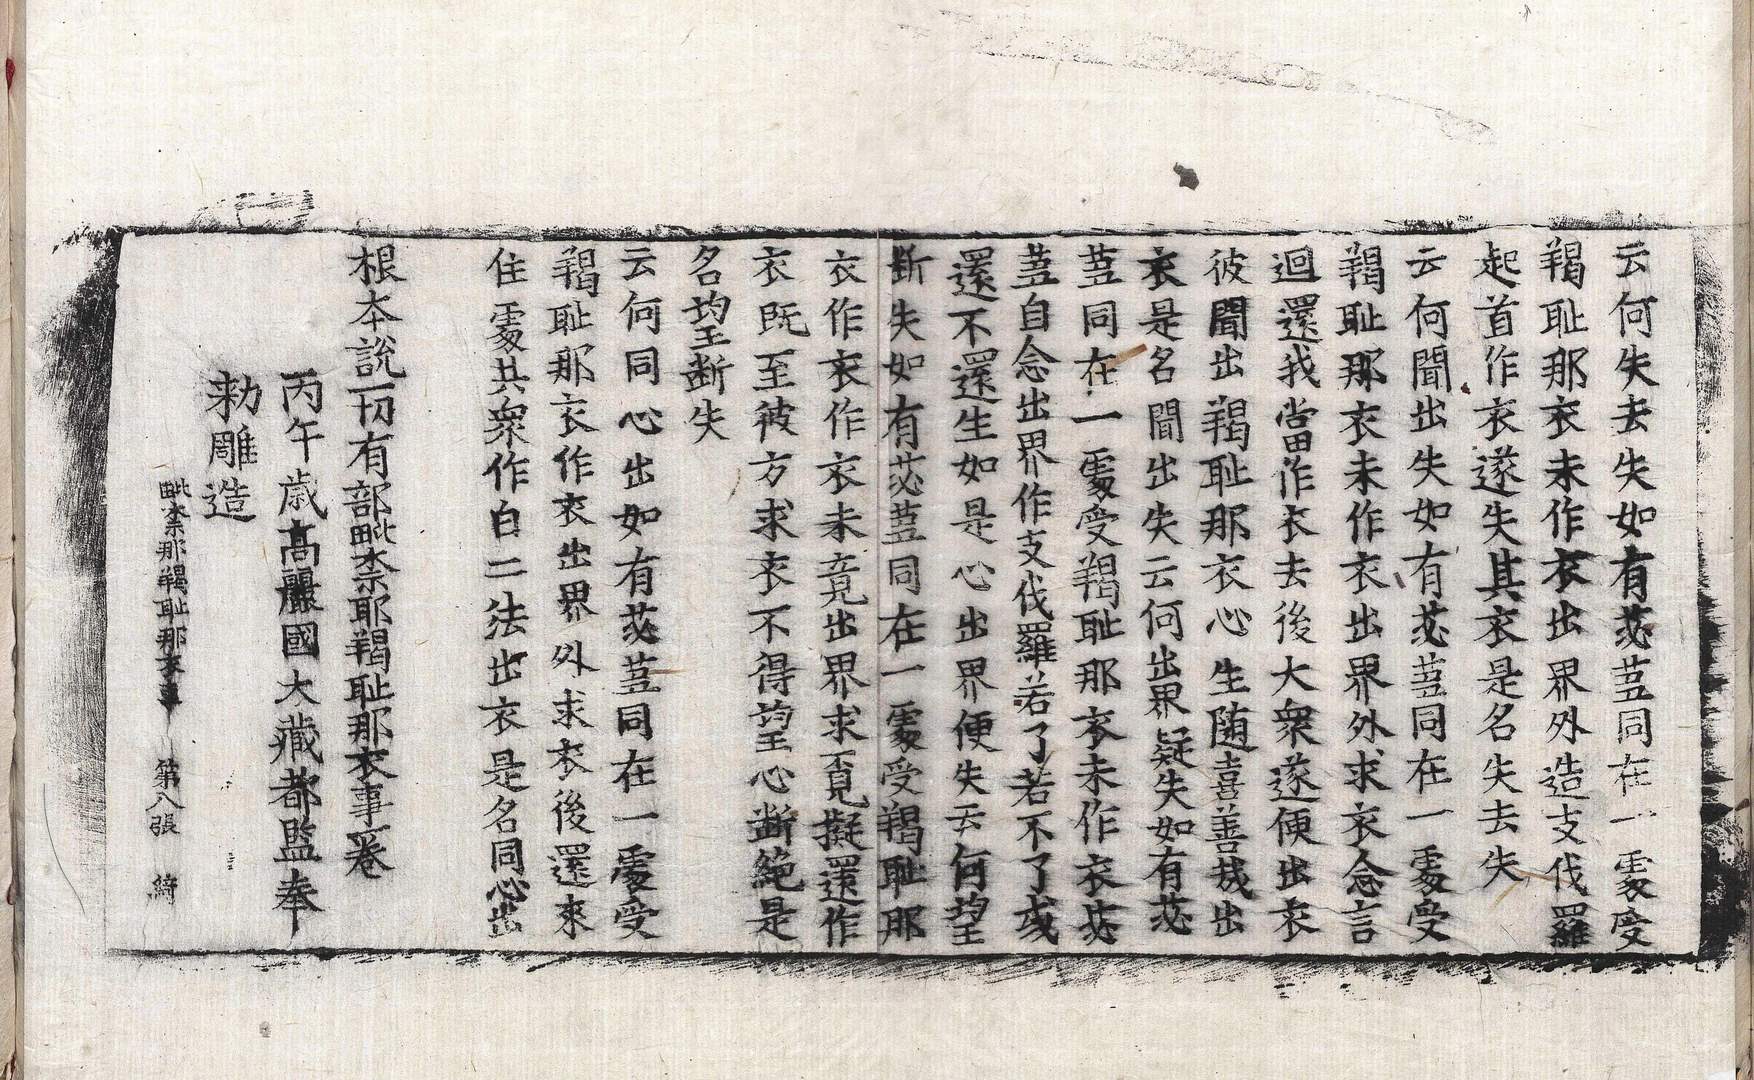 云何失去失如有苾蒭同在一處受
羯恥那衣未作衣出界外造支伐羅
起首作衣遂失其衣是名失去失
云何聞出失如有苾蒭同在一處受
羯恥那衣未作衣出界外求衣念言
迴還我當作衣去後大衆遂便出衣
彼聞出羯恥那衣心生随喜善哉出
衣是名聞出失云何出界疑失如有苾
蒭同在一處受羯恥那衣未作衣苾
蒭自念出界作支伐羅若了若不了或
還不還生如是心出界便失云何望
斷失如有苾蒭同在一處受羯恥那
衣作衣作衣未竟出界求覓擬還作
衣既至彼方求衣不得望心斷絕是
名望斷失
云何同心出如有苾蒭同在一處受
羯恥那衣作衣出界外求衣後還來
住處共衆作白二法出衣是名同心出
根本說一切有部毗柰耶羯恥那衣事一卷
丙午歲高麗國大藏都監奉
勅雕造
毗柰那羯恥那衣事 第八張 綺